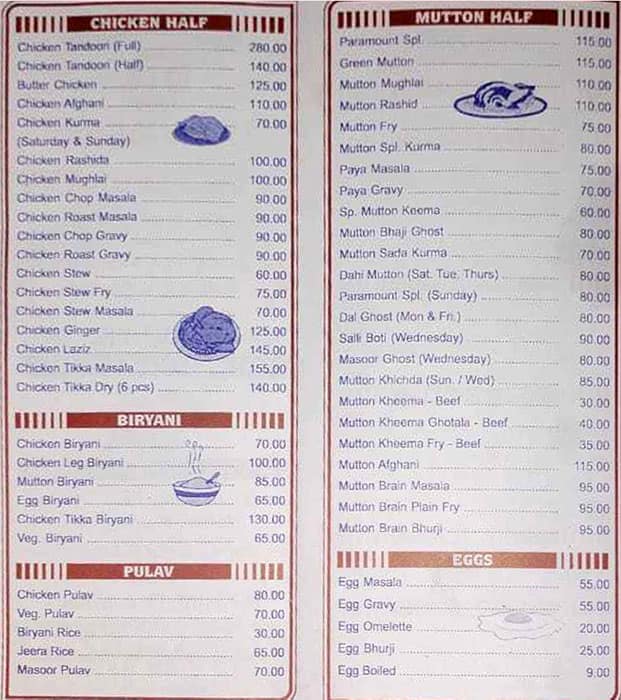 CHICKEN HALF
Chicken Tandoori (Full) 280.00
Chicken Tandoori (Half) 140.00
Butter Chicken 125.00
Chicken Afghani 110.00
Chicken Kurma 70.00
(Saturday & Sunday)
Chicken Rashida 100.00
Chicken Mughlai 100.00
Chicken Chop Masala 90.00
Chicken Roast Masala 90.00
Chicken Chop Gravy 90.00
Chicken Roast Gravy 90.00
Chicken Stew 60.00
Chicken Stew Fry 75.00
Chicken Stew Masala 70.00
Chicken Ginger 125.00
Chicken Laziz 145.00
Chicken Tikka Masala 155.00
Chicken Tikka Dry (6 pcs) 140.00
BIRYANI
Chicken Biryani 70.00
Chicken Leg Biryani 100.00
Mutton Biryani 85.00
Egg Biryani 65.00
Chicken Tikka Biryani 130.00
Veg. Biryani 65.00
PULAV
Chicken Pulav 80.00
Veg. Pulav 70.00
Biryani Rice 30.00
Jeera Rice 65.00
Masoor Pulav 70.00
MUTTON HALF
Paramount Spl. 115.00
Green Mutton 115.00
Mutton Mughlai 110.00
Mutton Rashid 110.00
Mutton Fry 75.00
Mutton Spl. Kurma 80.00
Paya Masala 75.00
Paya Gravy 70.00
Sp. Mutton Keema 60.00
Mutton Bhaji Ghost 80.00
Mutton Sada Kurma 70.00
Dahi Mutton (Sat. Tue. Thurs) 80.00
Paramount Spl. (Sunday) 80.00
Dal Ghost (Mon & Fri.) 80.00
Salli Boti (Wednesday) 90.00
Masoor Ghost (Wednesday) 80.00
Mutton Khichda (Sun. / Wed) 85.00
Mutton Kheema - Beef 30.00
Mutton Kheema Ghotala - Beef 40.00
Mutton Kheema Fry - Beef 35.00
Mutton Afghani 115.00
Mutton Brain Masala 95.00
Mutton Brain Plain Fry 95.00
Mutton Brain Bhurji 95.00
EGGS
Egg Masala 55.00
Egg Gravy 55.00
Egg Omelette 20.00
Egg Bhurji 25.00
Egg Boiled 9.00